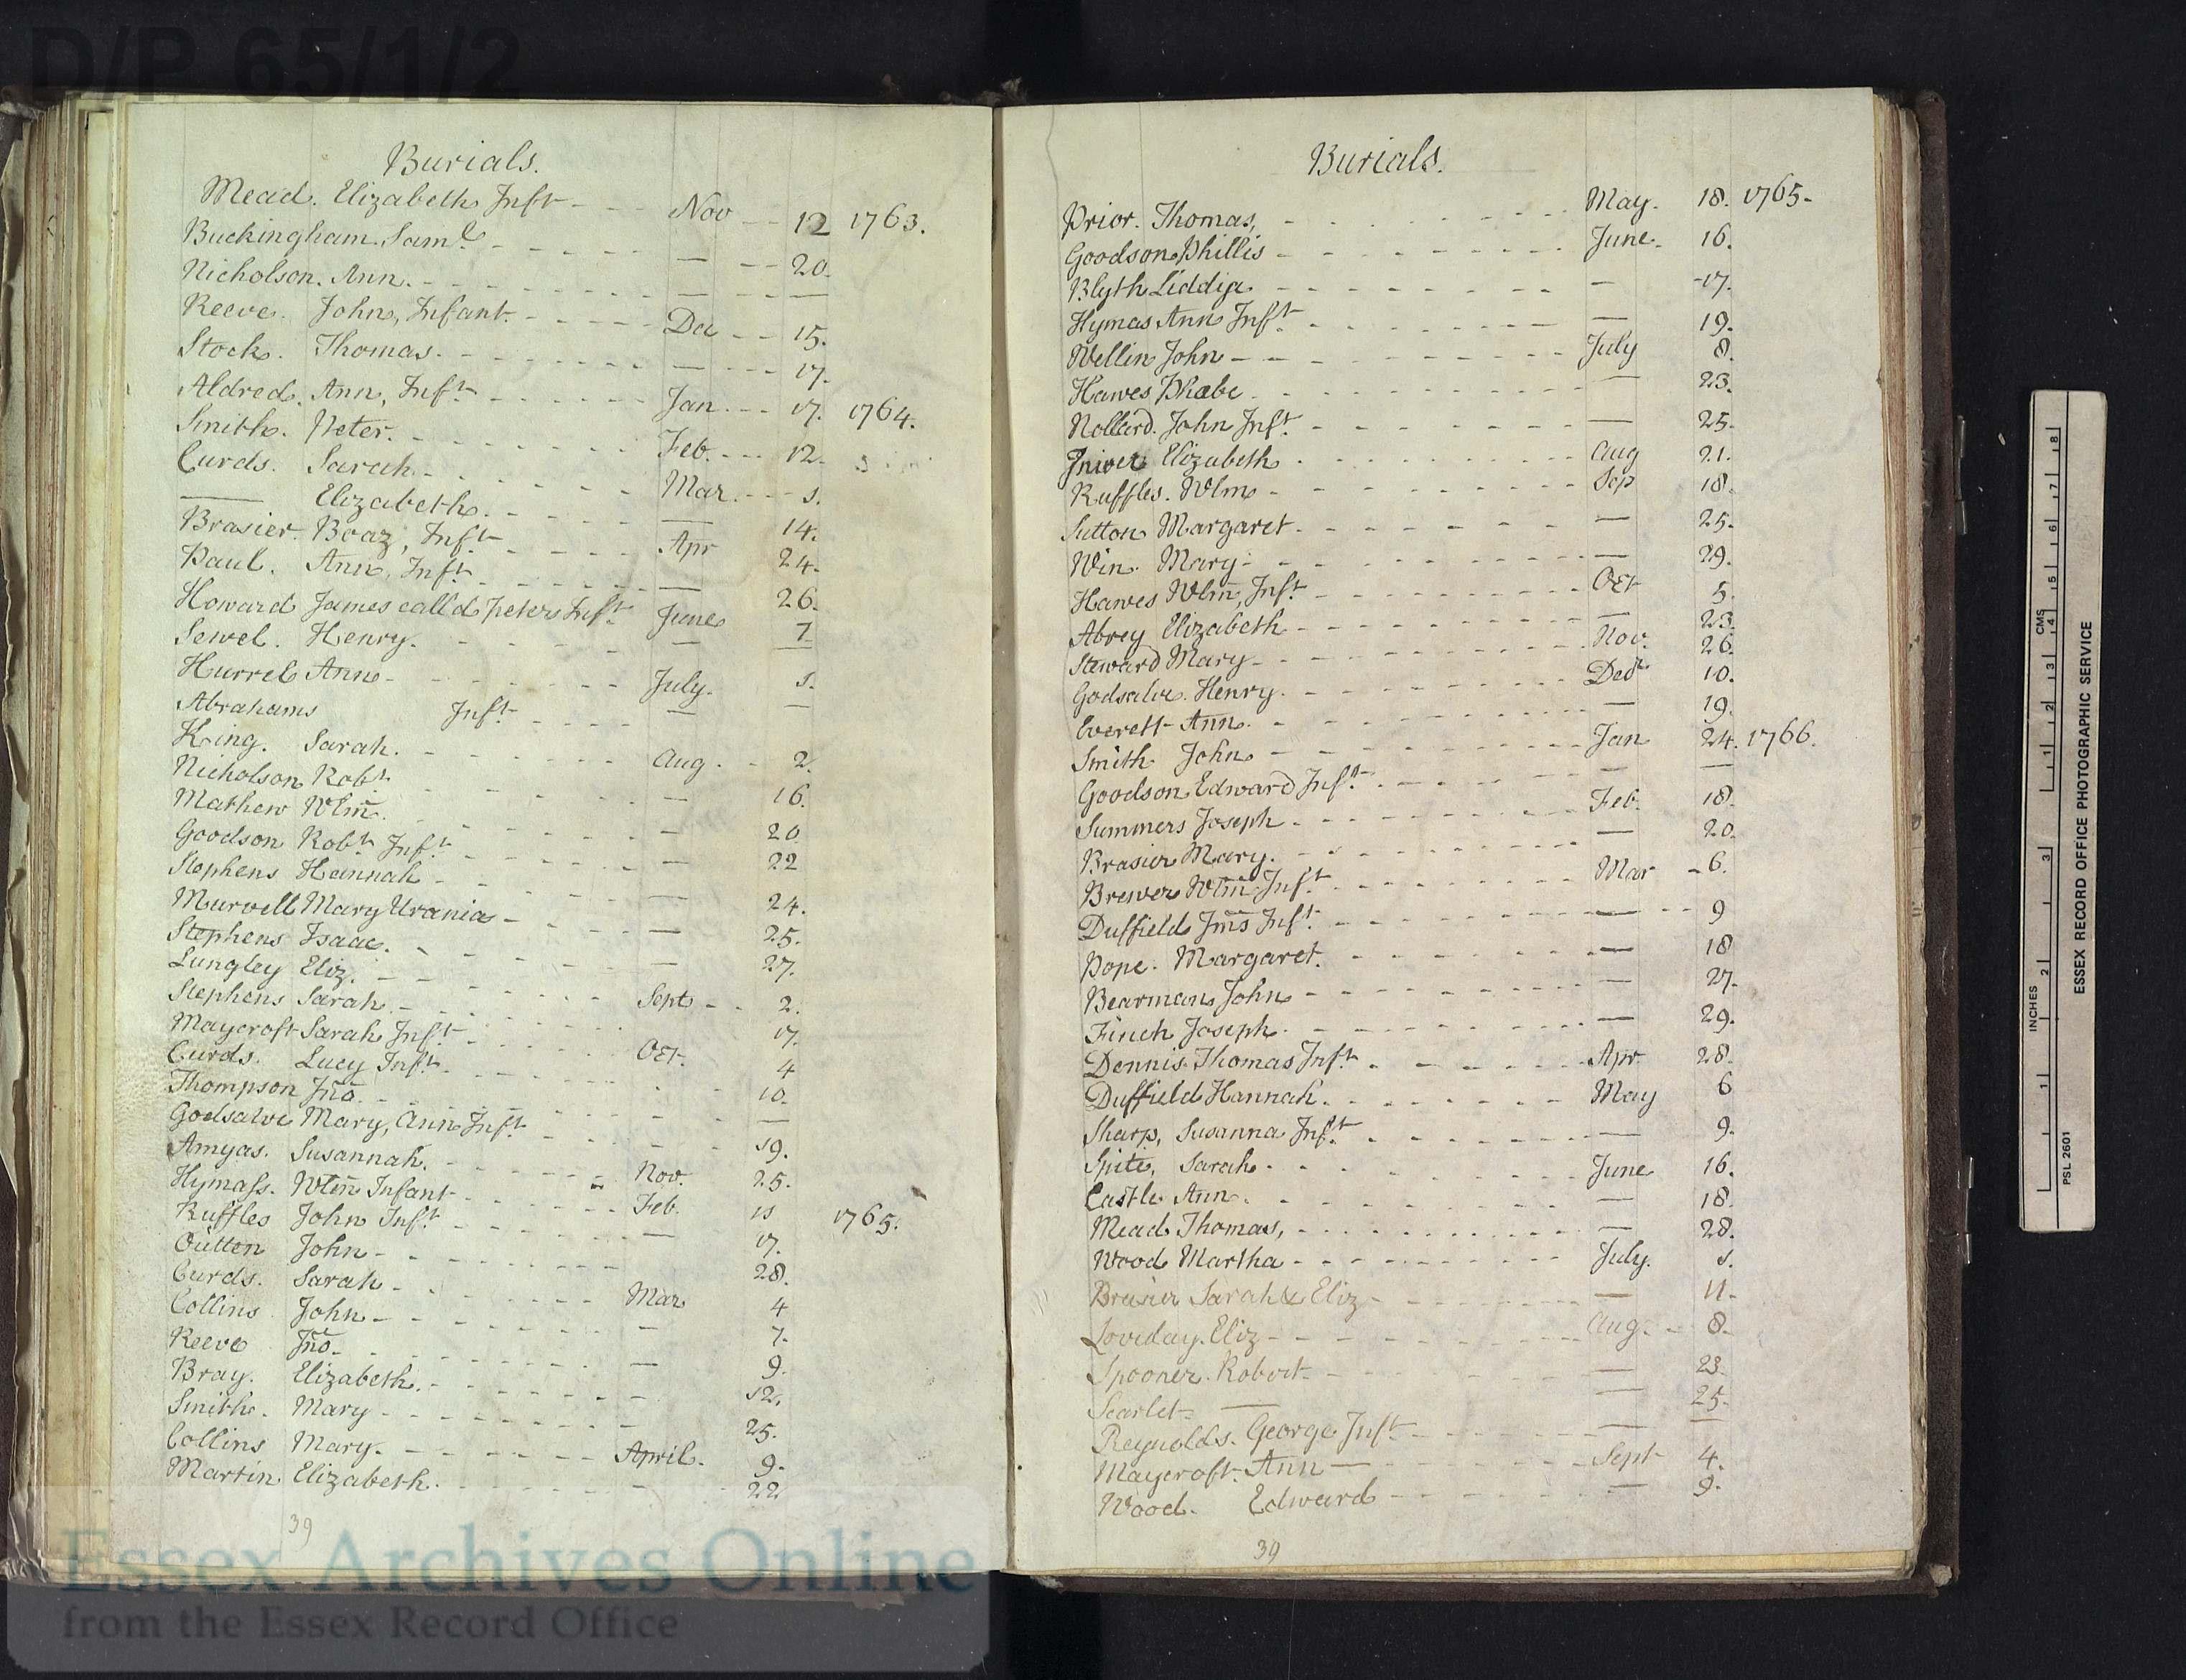 D/P 65/1/2
Burials.
Mead. Elizabeth Inft - - - Nov - - 12 1763.
Buckingham. Saml - - - - - — - - 20.
Nicholson. Ann. - - - - - - — - - —
Reeve. John, Infant. - - - - Dec - - 15.
Stock. Thomas. - - - - - - — - - 17.
Aldred. Ann, Inft. - - - - - Jan. - - 17. 1764.
Smith. Peter. - - - - - - Feb. - - - 12.
Curds. Sarah. - - - - - - Mar. - - - 1.
—— Elizabeth. - - - - — 14.
Brasier. Boaz, Inft - - - - Apr 24.
Paul. Ann, Inft. - - - - - — 26.
Howard James calld Peters Inft. June 7
Sewel. Henry. - - - - - — —
Hurrel Ann - - - - - - July. 1.
Abrahams Inft. - - - — —
King. Sarah. - - - - - - Aug. - 2.
Nicholson Robt. - - - - - — 16.
Mathew Wlm. - - - - - — 20
Goodson Robt. Inft. - - - - — 22
Stephens Hannah - - - - - — 24.
Murvell Mary Urania - - - - — 25.
Stephens Isaac. - - - - - — 27.
Lungley Eliz. - - - - - - Sept - - 2.
Stephens Sarah - - - - - - 17.
Maycroft Sarah Inft. - - - - Oct. 4
Curds. Lucy Inft. - - - - - - 10.
Thompson Jno. - - - - - - - —
Godsalve Mary, Ann Inft. - - - - - 19.
Amyas. Susannah. - - - - - Nov. 25.
Hymass. Wlm Infant - - - - Feb. 11 1765.
Ruffles John Inft. - - - - - — 17.
Outten John - - - - - - - 28.
Curds. Sarah - - - - - - Mar 4
Collins John - - - - - - — 7.
Reeve Jno. - - - - - - — 9.
Bray. Elizabeth. - - - - - — 12.
Smith. Mary - - - - - - — 25.
Collins Mary. - - - - - - April. 9.
Martin Elizabeth. - - - - - — 22
39
Burials.
Prior. Thomas, - - - - - - - May. 18. 1765.
Goodson Phillis - - - - - - - - June. 16.
Blyth Liddia. - - - - - - - - — 17.
Hymas Ann Inft. - - - - - - - — 19.
Wellin John - - - - - - - - - July 8.
Hawes Phœbe - - - - - - - - — 23.
Nollard. John Inft. - - - - - - - — 25.
Elizabeth - - - - - - - - Aug 21.
Ruffles. Wlm - - - - - - - - Sep 18.
Sutton Margaret - - - - - - - — 25.
Win. Mary - - - - - - - - - — 29.
Hawes Wlm, Inft. - - - - - - - Oct 5.
Abrey Elizabeth - - - - - - - - — 23.
Steward Mary - - - - - - - - Nov. 26.
Godsalve. Henry. - - - - - - - - Decr 10.
Everett Ann. - - - - - - - - — 19.
Smith John - - - - - - - - - Jan 24. 1766.
Goodson Edward Inft. - - - - - - — —
Summers Joseph - - - - - - - - Feb. 18.
Brasier Mary. - - - - - - - - — 20.
Brewer Wlm Inft. - - - - - - - Mar - 6.
Duffield Jms Inft. - - - - - - - — - - 9
Pope. Margaret. - - - - - - - - — 18
Bearman John - - - - - - - - — 27.
Finch Joseph. - - - - - - - - — 29.
Dennis Thomas Inft. - - - - - - Apr 28.
Duffield Hannah. - - - - - - - May 6
Sharp, Susanna Inft. - - - - - - — 9.
Spite, Sarah - - - - - - - - June 16.
Castle Ann. - - - - - - - - - — 18.
Mead Thomas, - - - - - - - - — 28.
Wood Martha - - - - - - - - July. 1.
Brasier Sarah & Eliz - - - - - - — 11.
Loveday. Eliz - - - - - - - - Aug. - 8.
Spooner. Robert - - - - - - - — 23.
Scarlet — — 25.
Reynolds. George Inft - - - - - — —
Maycroft. Ann — - - - - - - Sept 4.
Wood. Edward - - - - - - — 9.
39
Essex Archives Online
from the Essex Record Office
INCHES 1 2 3
CMS 1 2 3 4 5 6 7 8
PSL 2601
ESSEX RECORD OFFICE PHOTOGRAPHIC SERVICE